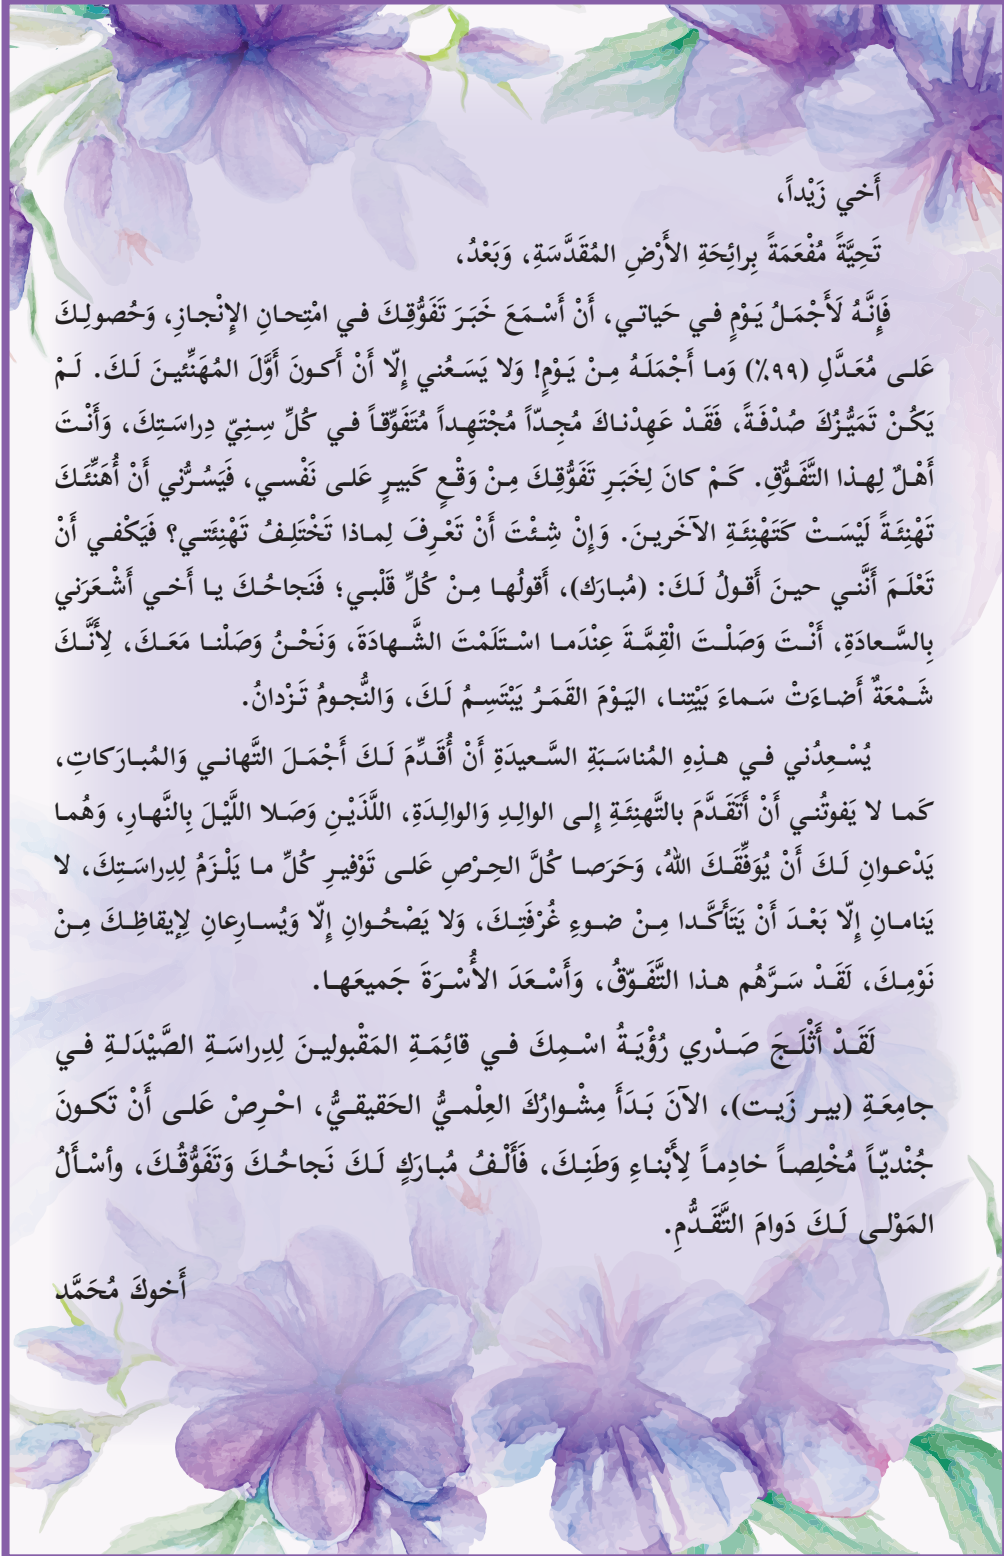 أَخي زَيْداً،
تَحِيَّةً مُفْعَمَةً بِرائِحَةِ الأَرْضِ المُقَدَّسَةِ، وَبَعْدُ،
فَإِنَّهُ لَأَجْمَلُ يَوْمٍ في حَياتي، أَنْ أَسْمَعَ خَبَرَ تَفَوُّقِكَ في امْتِحانِ الإِنْجازِ، وَحُصولِكَ
عَلى مُعَدَّلِ (٩٩٪) وَما أَجْمَلَهُ مِنْ يَوْمٍ! وَلا يَسَعُني إِلّا أَنْ أَكونَ أَوَّلَ المُهَنِّئينَ لَكَ. لَمْ
يَكُنْ تَمَيُّزُكَ صُدْفَةً، فَقَدْ عَهِدْناكَ مُجِدّاً مُجْتَهِداً مُتَفَوِّقاً في كُلِّ سِنِيّ دِراسَتِكَ، وَأَنْتَ
أَهْلٌ لِهذا التَّفَوُّقِ. كَمْ كانَ لِخَبَرِ تَفَوُّقِكَ مِنْ وَقْعٍ كَبيرٍ عَلى نَفْسي، فَيَسُرُّني أَنْ أُهَنِّئَكَ
تَهْنِئَةً لَيْسَتْ كَتَهْنِئَةِ الآخَرينَ. وَإِنْ شِئْتَ أَنْ تَعْرِفَ لِماذا تَخْتَلِفُ تَهْنِئَتي؟ فَيَكْفي أَنْ
تَعْلَمَ أَنَّني حينَ أَقولُ لَكَ: (مُبارَك)، أَقولُها مِنْ كُلِّ قَلْبي؛ فَنَجاحُكَ يا أَخي أَشْعَرَني
بِالسَّعادَةِ، أَنْتَ وَصَلْتَ الْقِمَّةَ عِنْدَما اسْتَلَمْتَ الشَّهادَةَ، وَنَحْنُ وَصَلْنا مَعَكَ، لِأَنَّكَ
شَمْعَةٌ أَضاءَتْ سَماءَ بَيْتِنا، اليَوْمَ القَمَرُ يَبْتَسِمُ لَكَ، وَالنُّجومُ تَزْدانُ.
يُسْعِدُني في هذِهِ المُناسَبَةِ السَّعيدَةِ أَنْ أُقَدِّمَ لَكَ أَجْمَلَ التَّهاني وَالمُبارَكاتِ،
كَما لا يَفوتُني أَنْ أَتَقَدَّمَ بالتَّهنِئَةِ إِلى الوالِدِ وَالوالِدَةِ، اللَّذَيْنِ وَصَلا اللَّيْلَ بِالنَّهارِ، وَهُما
يَدْعوانِ لَكَ أَنْ يُوَفِّقَكَ اللهُ، وَحَرَصا كُلَّ الحِرْصِ عَلى تَوْفيرِ كُلِّ ما يَلْزَمُ لِدِراسَتِكَ، لا
يَنامانِ إِلّا بَعْدَ أَنْ يَتَأَكَّدا مِنْ ضوءِ غُرْفَتِكَ، وَلا يَصْحُوانِ إِلّا وَيُسارِعانِ لِإيقاظِكَ مِنْ
نَوْمِكَ، لَقَدْ سَرَّهُم هذا التَّفَوّقُ، وَأَسْعَدَ الأُسْرَةَ جَميعَها.
لَقَدْ أَثْلَجَ صَدْري رُؤْيَةُ اسْمِكَ في قائِمَةِ المَقْبولينَ لِدِراسَةِ الصَّيْدَلةِ في
جامِعَةِ (بير زَيت)، الآنَ بَدَأَ مِشْوارُكَ العِلْميُّ الحَقيقيُّ، احْرِصْ عَلى أَنْ تَكونَ
جُنْديّاً مُخْلِصاً خادِماً لِأَبْناءِ وَطَنِكَ، فَأَلْفُ مُبارَكٍ لَكَ نَجاحُكَ وَتَفَوُّقُكَ، وأسْأَلُ
المَوْلى لَكَ دَوامَ التَّقَدُّمِ.
أَخوكَ مُحَمَّد